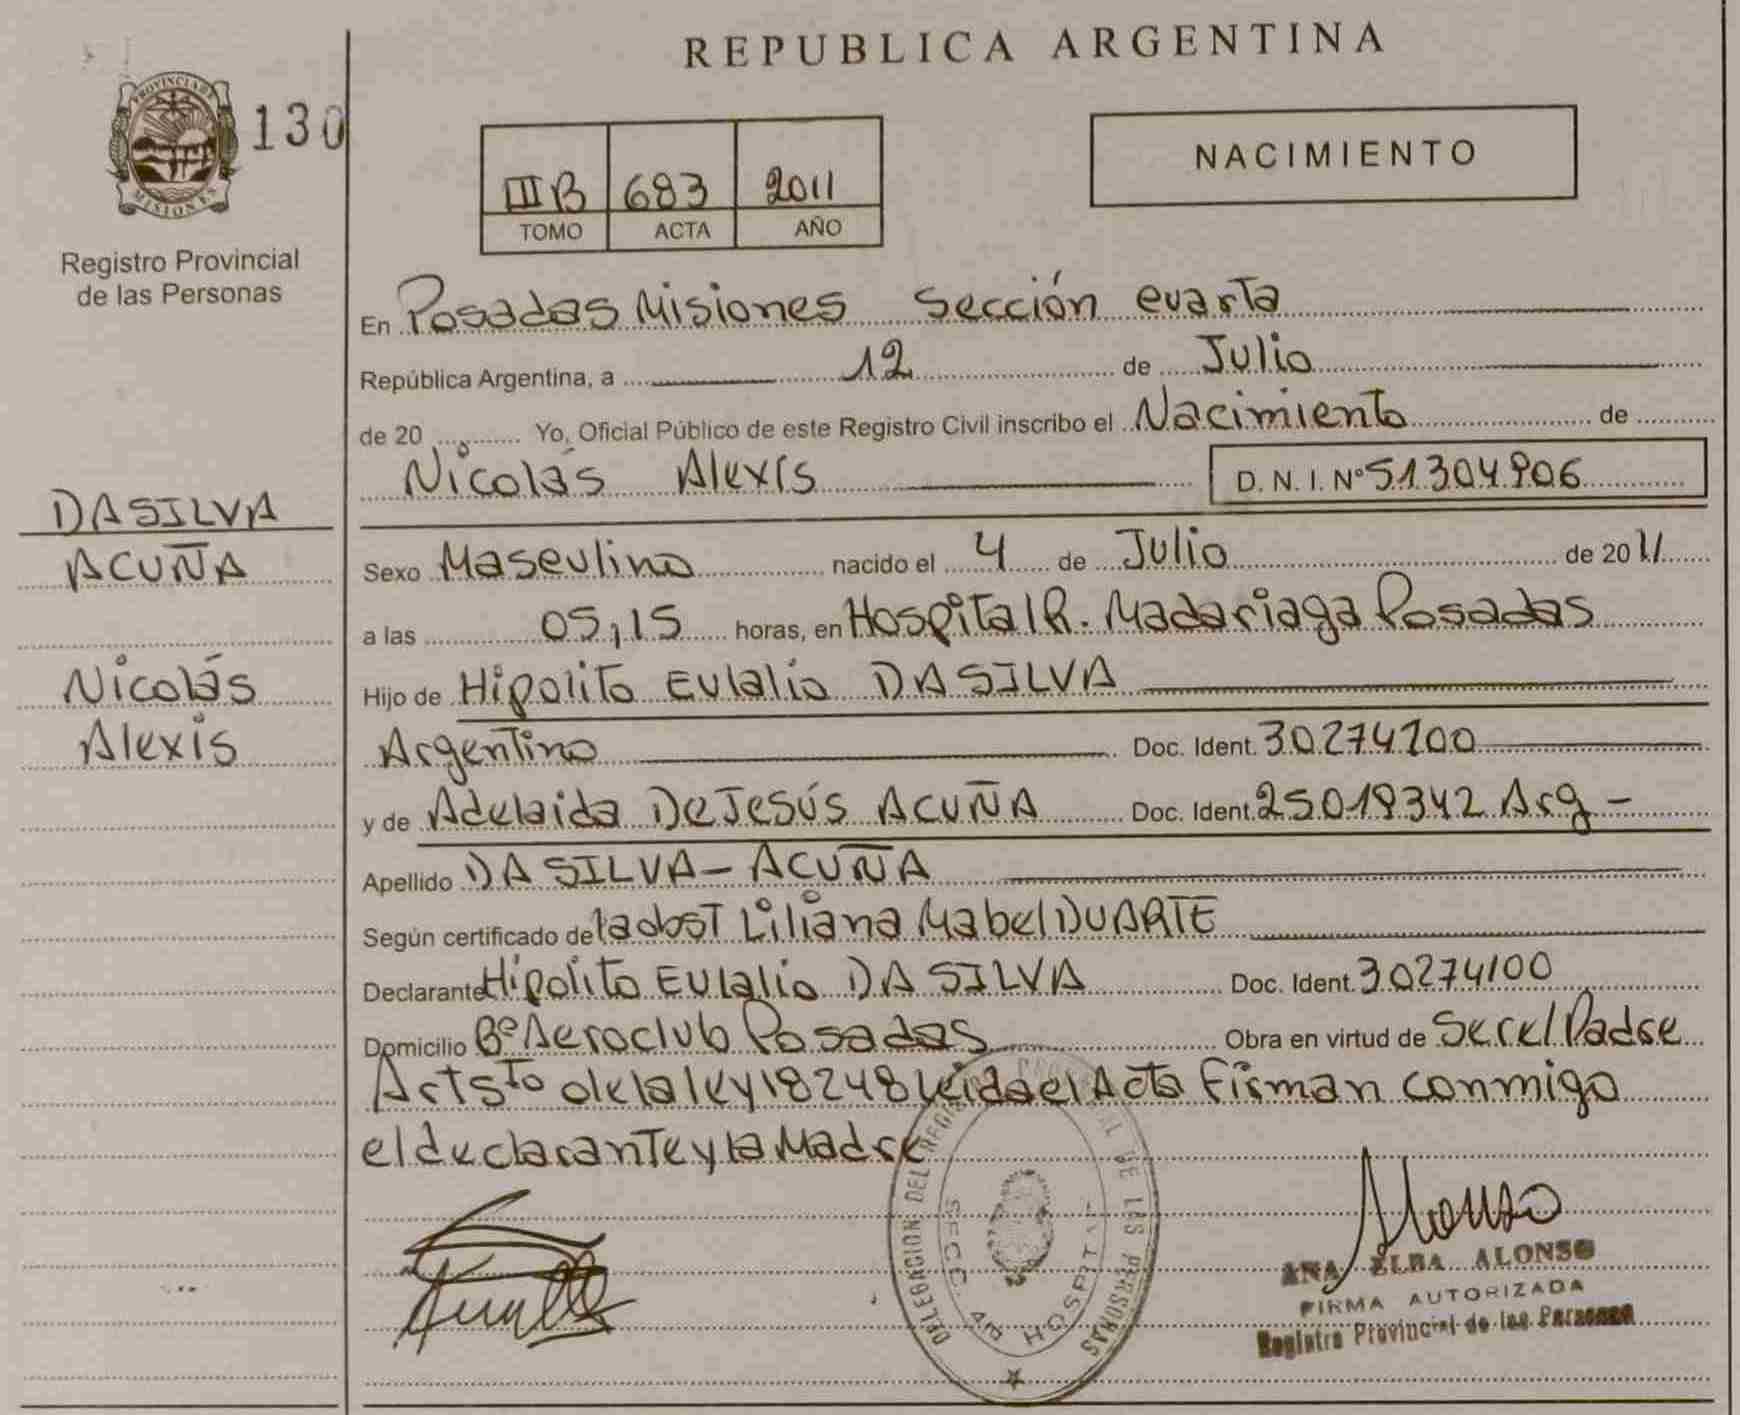 REPUBLICA ARGENTINA
PROVINCIA DE
MISIONES
130
Registro Provincial
de las Personas
III B 683 2011
TOMO ACTA AÑO
NACIMIENTO
En Posadas Misiones Sección cuarta
República Argentina, a 12 de Julio
de 20 Yo, Oficial Público de este Registro Civil inscribo el Nacimiento de
Nicolás Alexis D. N. I. Nº 51304906
DA SILVA
ACUÑA
Nicolás
Alexis
Sexo Masculino nacido el 4 de Julio de 2011
a las 05,15 horas, en Hospital R. Madariaga Posadas
Hijo de Hipolito Eulalio DA SILVA
Argentino Doc. Ident. 30274100
y de Adelaida De Jesús ACUÑA Doc. Ident. 25019342 Arg -
Apellido DA SILVA - ACUÑA
Según certificado de la obst Liliana Mabel DUARTE
Declarante Hipolito Eulalio DA SILVA Doc. Ident. 30274100
Domicilio Bº Aeroclub Posadas Obra en virtud de Ser el Padre
Art 5to de la ley 18248 leida el Acta Firman conmigo
el declarante y la Madre
DELEGACION DEL REGISTRO PROVINCIAL DE LAS PERSONAS
SECC. 4ta HOSPITAL
Alonso
ANA ELBA ALONSO
FIRMA AUTORIZADA
Registro Provincial de las Personas